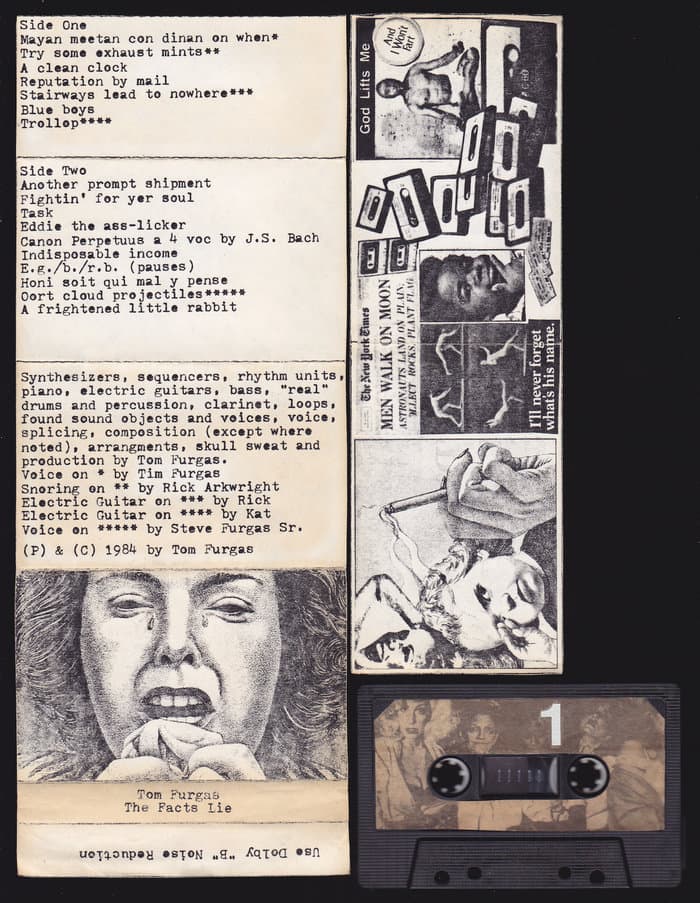 Side One
Mayan meetan con dinan on when*
Try some exhaust mints**
A clean clock
Reputation by mail
Stairways lead to nowhere***
Blue boys
Trollop****
Side Two
Another prompt shipment
Fightin' for yer soul
Task
Eddie the ass-licker
Canon Perpetuus a 4 voc by J.S. Bach
Indisposable income
E.g./b./r.b. (pauses)
Honi soit qui mal y pense
Oort cloud projectiles*****
A frightened little rabbit
Synthesizers, sequencers, rhythm units,
piano, electric guitars, bass, "real"
drums and percussion, clarinet, loops,
found sound objects and voices, voice,
splicing, composition (except where
noted), arrangments, skull sweat and
production by Tom Furgas.
Voice on * by Tim Furgas
Snoring on ** by Rick Arkwright
Electric Guitar on *** by Rick
Electric Guitar on **** by Kat
Voice on ***** by Steve Furgas Sr.
(P) & (C) 1984 by Tom Furgas
Tom Furgas
The Facts Lie
Use Dolby "B" Noise Reduction
God Lifts Me
And
I Won't
Fart
C60
The New York Times
MEN WALK ON MOON
ASTRONAUTS LAND ON PLAIN;
LLECT ROCKS, PLANT FLAG
I'll never forget
what's his name.
1